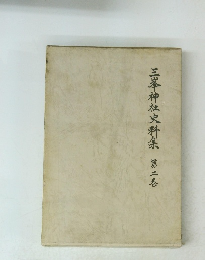 三峯神社史料集　第二巻